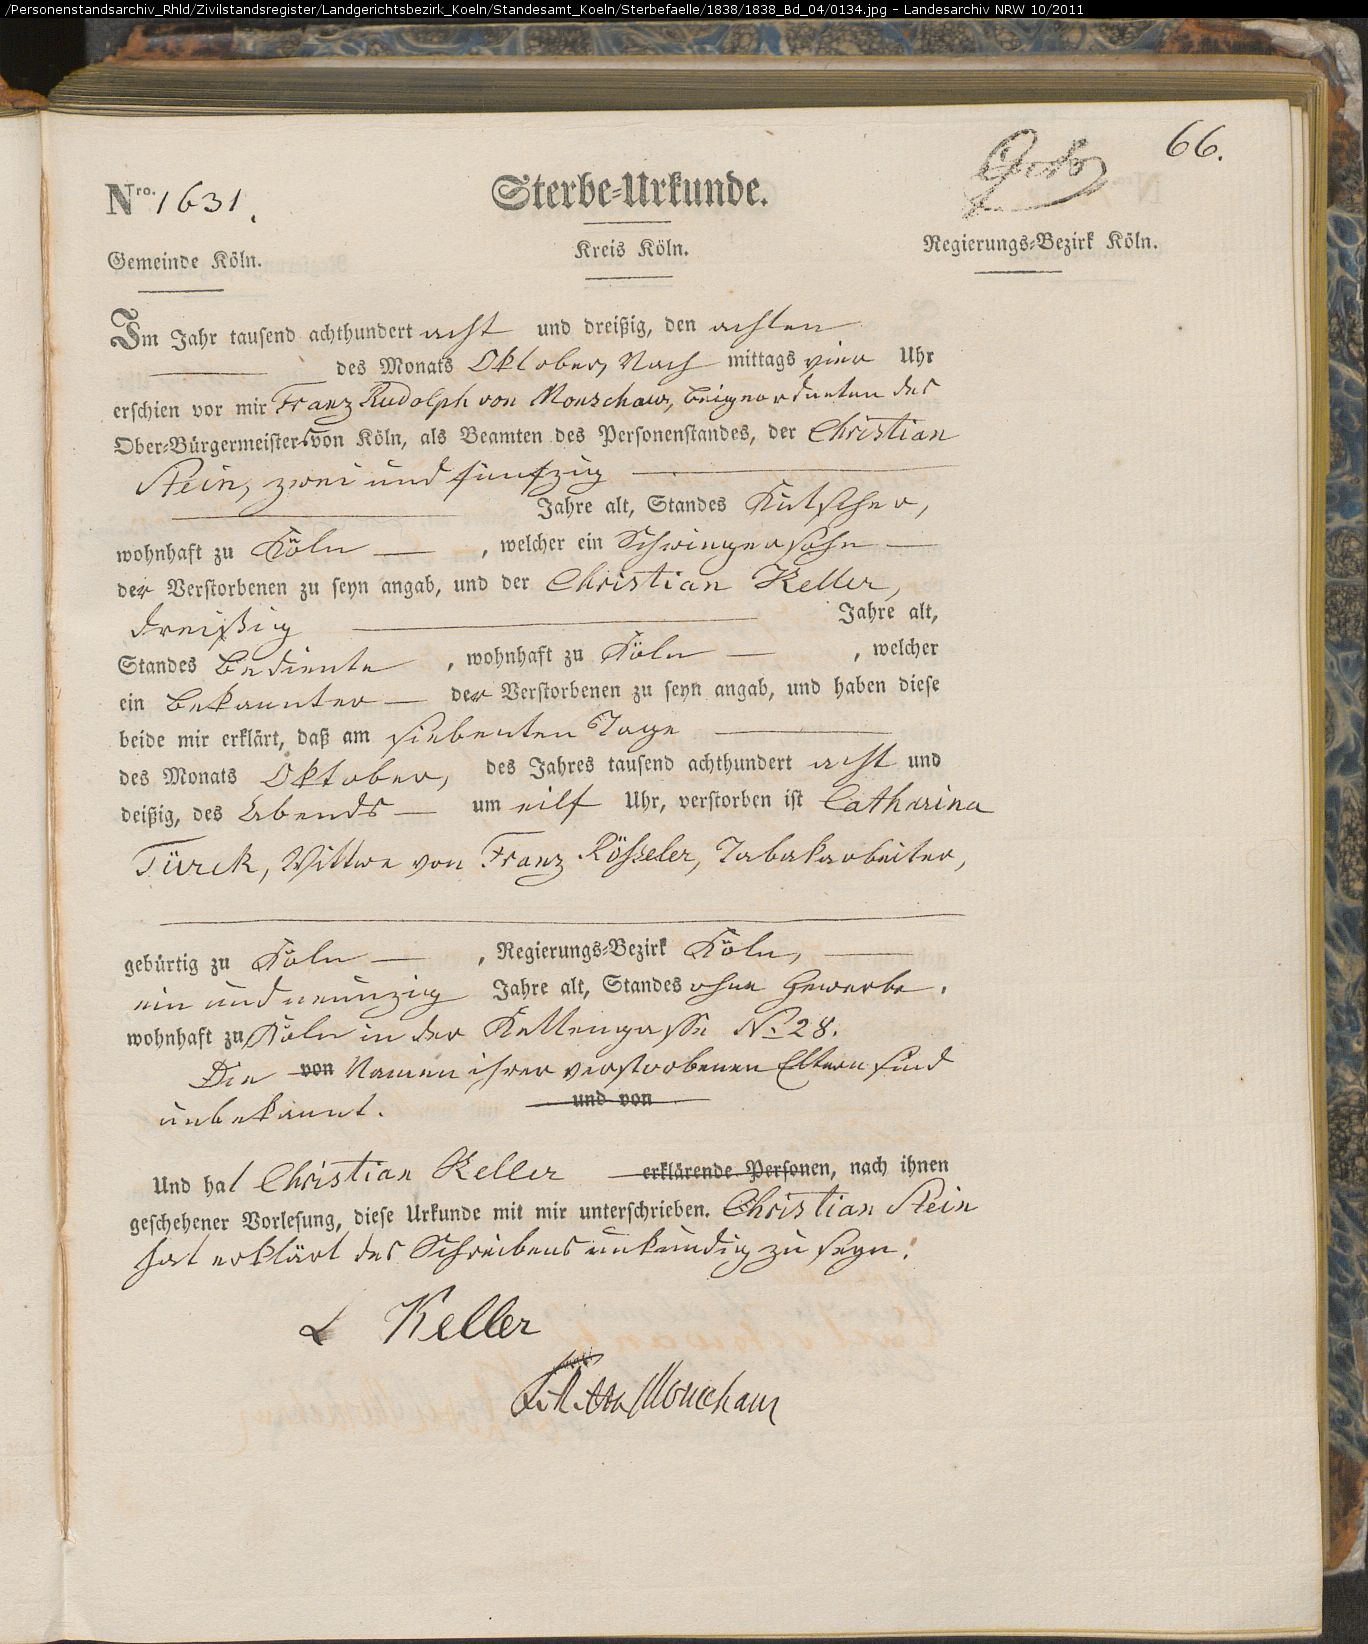 /Personenstandsarchiv_Rhld/Zivilstandsregister/Landgerichtsbezirk_Koeln/Standesamt_Koeln/Sterbefaelle/1838/1838_Bd_04/0134.jpg - Landesarchiv NRW 10/2011
66.
Nro. 1631.
Sterbe-Urkunde.
Gemeinde Köln.
Kreis Köln.
Regierungs-Bezirk Köln.
Im Jahr tausend achthundert acht und dreißig, den achten
des Monats Oktober, Nach mittags vier Uhr
erschien vor mir Franz Rudolph von Monschaw, Beigeordneten des
Ober-Bürgermeisters von Köln, als Beamten des Personenstandes, der Christian
Stein, zwei und fünfzig
Jahre alt, Standes Kutscher,
wohnhaft zu Köln, welcher ein Schwiegersohn
der Verstorbenen zu seyn angab, und der Christian Keller,
dreißig Jahre alt,
Standes Bediente, wohnhaft zu Köln, welcher
ein Bekannter der Verstorbenen zu seyn angab, und haben diese
beide mir erklärt, daß am siebenten Tage
des Monats Oktober, des Jahres tausend achthundert acht und
deißig, des Abends um eilf Uhr, verstorben ist Catharina
Türck, Wittwe von Franz Rösseler, Tabakarbeiter,
gebürtig zu Köln, Regierungs-Bezirk Köln,
ein und neunzig Jahre alt, Standes ohne Gewerbe.
wohnhaft zu Köln in der Kettengasse No 28.
Die von Namen ihrer verstorbenen Eltern sind
unbekannt. und von
Und hat Christian Keller erklärende Personen, nach ihnen
geschehener Vorlesung, diese Urkunde mit mir unterschrieben. Christian Stein
hat erklärt des Schreibens unkundig zu seyn.
Keller